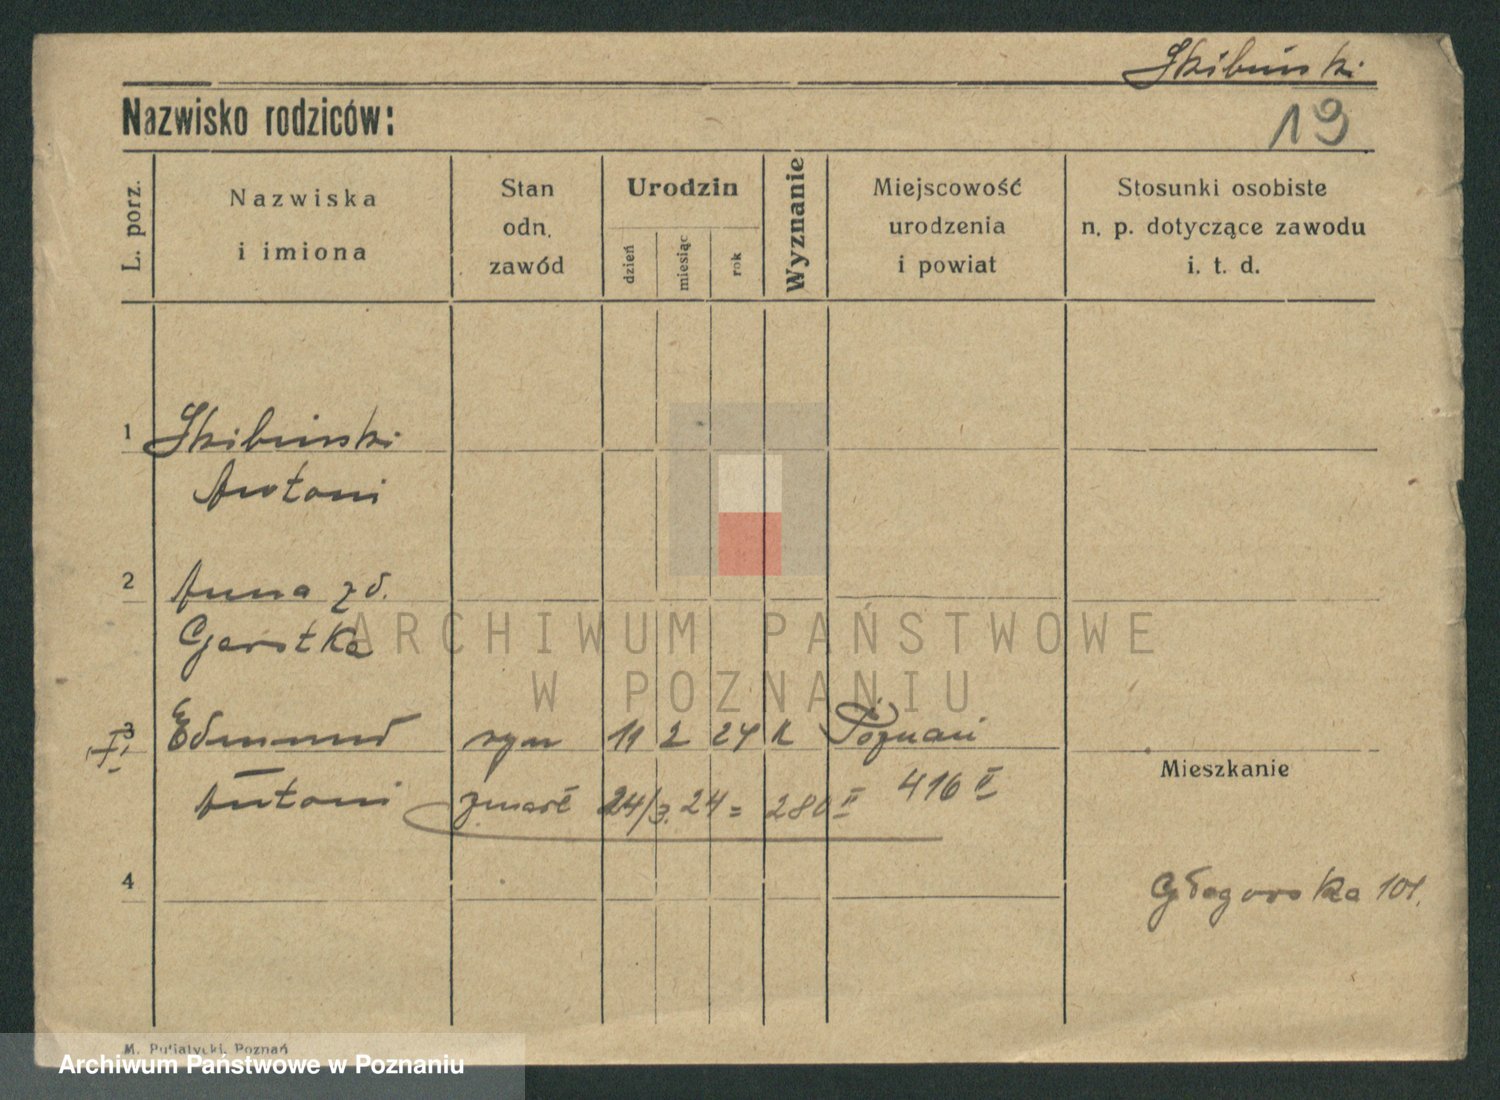 Skibiński
Nazwisko rodziców:
19
L. porz.
Nazwiska
i imiona
Stan
odn.
zawód
Urodzin
dzień
miesiąc
rok
Wyznanie
Miejscowość
urodzenia
i powiat
Stosunki osobiste
n. p. dotyczące zawodu
i. t. d.
1 Skibiński
Antoni
2 Anna zd.
Garstka
3 Edmund syn 11 2 24 k Poznań
I.
Antoni zmarł 24/3. 24 = 280 II 416 II
Mieszkanie
4
Głogowska 101.
ARCHIWUM PAŃSTWOWE
W POZNANIU
M. Putiatycki, Poznań
Archiwum Państwowe w Poznaniu